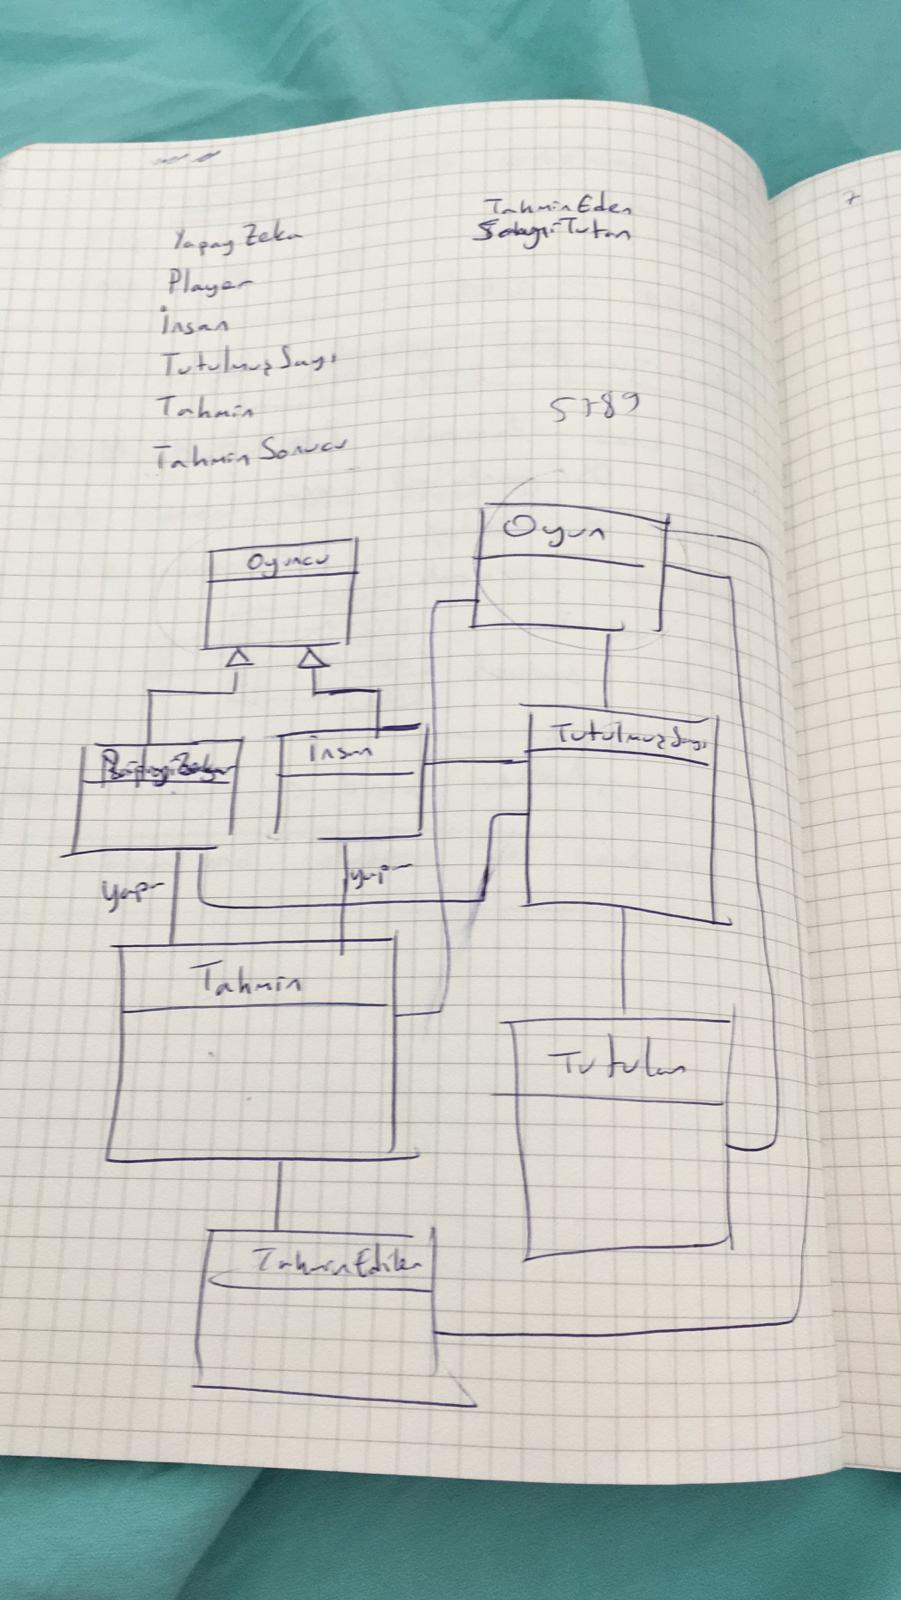 Yapay Zeka
Player
İnsan
TutulmuşSayı
Tahmin
Tahmin Sonucu
TahminEden
SayıyıTutan
5789
Oyuncu
Oyun
İnsan
TutulmuşSayı
yapar
yapar
Tahmin
Tutulan
TahminEdilen